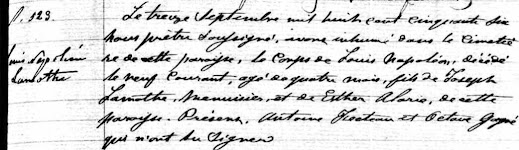 S. 123.
Louis Napoléon
Lamothe
Le treize Septembre mil huit cent cinquante six
nous prêtre soussigné, avons inhumé dans le cimetiè
re de cette paroisse, le corps de Louis Napoléon, décédé
le neuf courant, agé de quatre mois, fils de Joseph
Lamothe, Menuisier, et de Esther Alarie, de cette
paroisse. Présens, Antoine et Octave Gagné
qui n'ont su signer